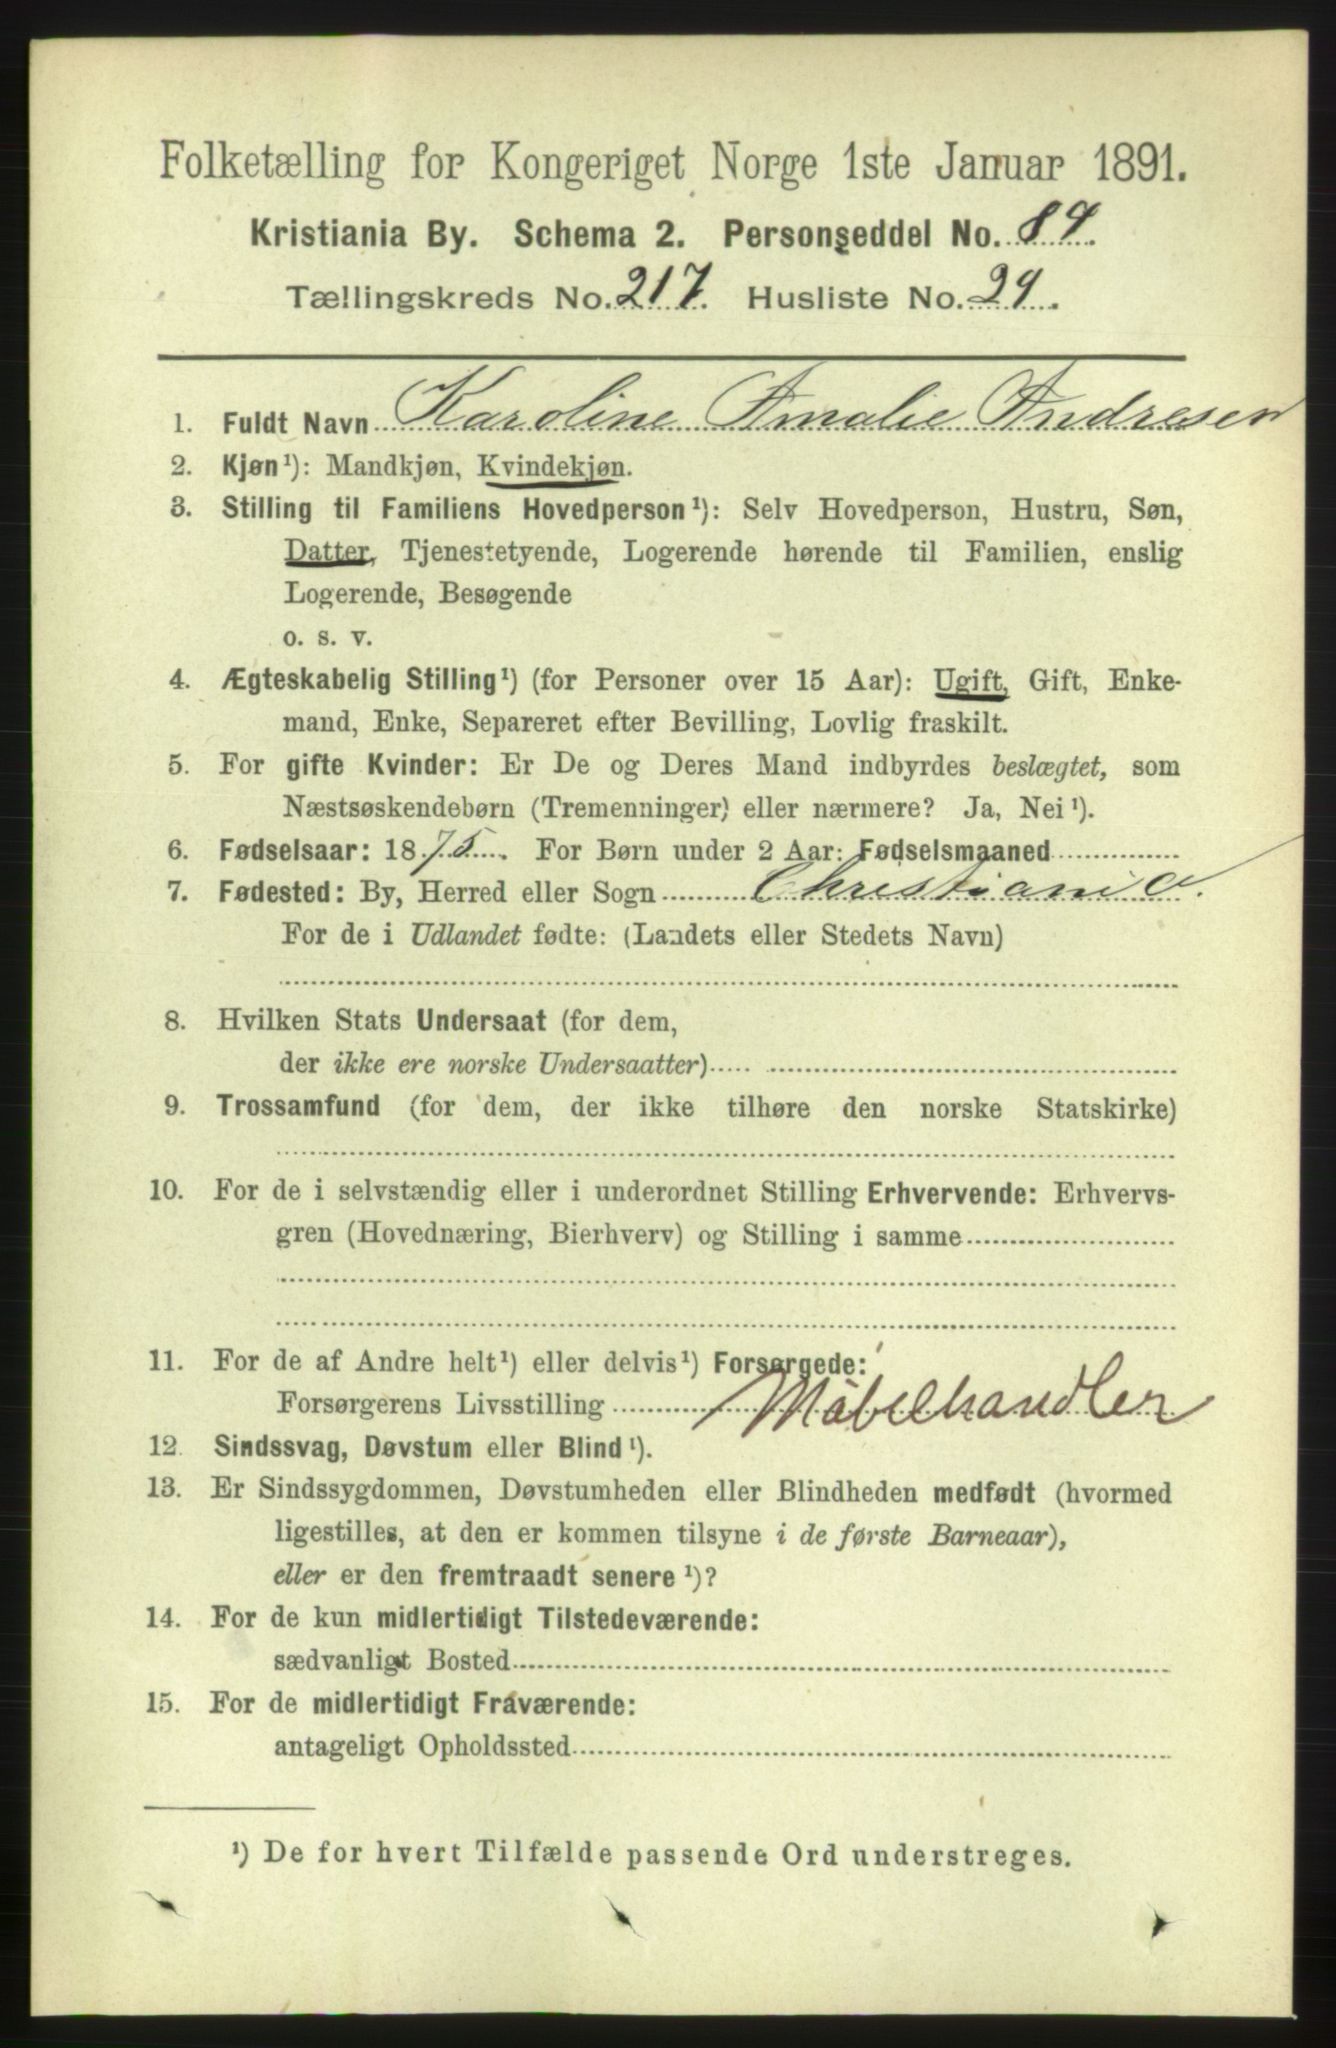 Folketælling for Kongeriget Norge 1ste Januar 1891.
Kristiania By. Schema 2. Personseddel No. 89.
Tællingskreds No. 217. Husliste No. 29.
1. Fuldt Navn Karoline Amalie Andresen
2. Kjøn¹): Mandkjøn, Kvindekjøn.
3. Stilling til Familiens Hovedperson¹): Selv Hovedperson, Hustru, Søn,
Datter, Tjenestetyende, Logerende hørende til Familien, enslig
Logerende, Besøgende
o. s. v.
4. Ægteskabelig Stilling¹) (for Personer over 15 Aar): Ugift, Gift, Enke-
mand, Enke, Separeret efter Bevilling, Lovlig fraskilt.
5. For gifte Kvinder: Er De og Deres Mand indbyrdes beslægtet, som
Næstsøskendebørn (Tremenninger) eller nærmere? Ja, Nei¹).
6. Fødselsaar: 1875. For Børn under 2 Aar: Fødselsmaaned
7. Fødested: By, Herred eller Sogn Christiania.
For de i Udlandet fødte: (Landets eller Stedets Navn)
8. Hvilken Stats Undersaat (for dem,
der ikke ere norske Undersaatter)
9. Trossamfund (for dem, der ikke tilhøre den norske Statskirke)
10. For de i selvstændig eller i underordnet Stilling Erhvervende: Erhvervs-
gren (Hovednæring, Bierhverv) og Stilling i samme
11. For de af Andre helt¹) eller delvis¹) Forsørgede:
Forsørgerens Livsstilling Møbelhandler
12. Sindssvag, Døvstum eller Blind¹).
13. Er Sindssygdommen, Døvstumheden eller Blindheden medfødt (hvormed
ligestilles, at den er kommen tilsyne i de første Barneaar),
eller er den fremtraadt senere¹)?
14. For de kun midlertidigt Tilstedeværende:
sædvanligt Bosted
15. For de midlertidigt Fraværende:
antageligt Opholdssted
¹) De for hvert Tilfælde passende Ord understreges.